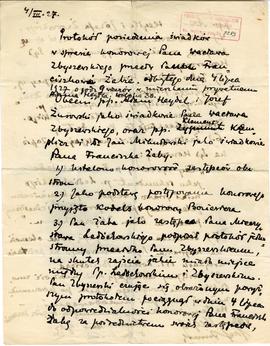 4/VII. 27.
Protokół posiedzenia świadków
w sprawie honorowej Pana Wacława
Zbyszewskiego przeciw Panu Fran-
ciszkowi Żabie, odbytego dnia 4 lipca
1927 o godz. 9 wiecz. w mieszkaniu prywatnem
Obecni pp. Adam Heydel i Józef
Żurowski jako świadkowie Pana Wacława
Zbyszewskiego, oraz pp. Zygmunt
i Jan jako świadkowie
Pana Franciszka Żaby.
1) Ustalono honorowość zastępców obu
stron.
2) Jako podstawę postępowania honorowego
przyjęto Kodeks honorowy Boziewicza
3) Pan Żaba jako zastępca Pana Mieczy-
sława podpisał protokół jedno-
stronny przeciwko Panu Zbyszewskiemu,
na skutek zajścia jakie miało miejsce
między p. i Zbyszewskim.
Pan Zbyszewski czując się obrażonym powyż-
szym protokołem pociągnął w dniu 4 lipca
do odpowiedzialności honorowej Pana Franciszka
Żabę za pośrednictwem swoich zastępców,